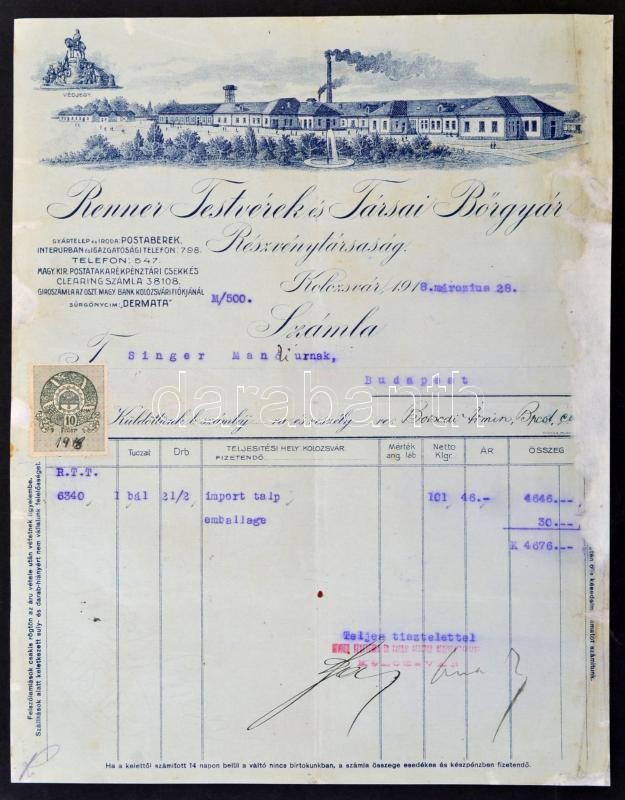 VÉDJEGY.
Renner Testvérek és Társai Bőrgyár
Részvénytársaság.
GYÁRTELEP és IRODA: POSTABEREK.
INTERURBAN és IGAZGATÓSÁGI TELEFON: 798.
TELEFON: 547.
MAGY. KIR. POSTATAKARÉKPÉNZTÁRI CSEKK ÉS
CLEARING SZÁMLA 38108.
GIROSZÁMLA AZ OSZT. MAGY. BANK KOLOZSVÁRI FIÓKJÁNÁL
SÜRGÖNYCIM: „DERMATA”
Kolozsvár, 1918.március 28.
M/500.
Számla
T Singer Mandi urnak,
Budapest
10
FILLÉR
1918
Küldöttünk b. számláj
Bocsai Ármin, Bpest,
Tuczat Drb TELJESITÉSI HELY KOLOZSVÁR. FIZETENDŐ. Mérték ang. láb Netto Klgr. ÁR ÖSSZEG
R.T.T.
6340 1 bál 21/2 import talp 101 46.- 4646.--
emballage 30.--
K 4676.--
Teljes tisztelettel
KOLOZSVÁR
Felszólamlások csakis rögtön az áru vétele után vétetnek figyelembe.
Szállítások alatt keletkezett suly- és darab-hiányért nem vállalunk felelősséget.
Ha a kelettől számított 14 napon belül a váltó nincs birtokunkban, a számla összege esedékes és készpénzben fizetendő.
darabanth